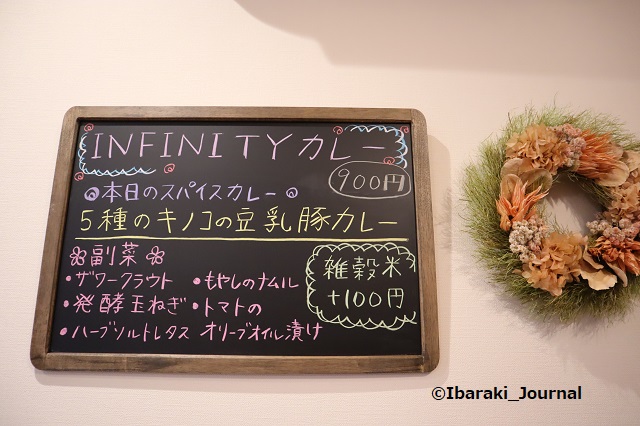 INFINITYカレー
900円
◎本日のスパイスカレー◎
5種のキノコの豆乳豚カレー
副菜
・ザワークラウト
・発酵玉ねぎ
・ハーブソルトレタス
・もやしのナムル
・トマトの
オリーブオイル漬け
雑穀米
+100円
©Ibaraki_Journal